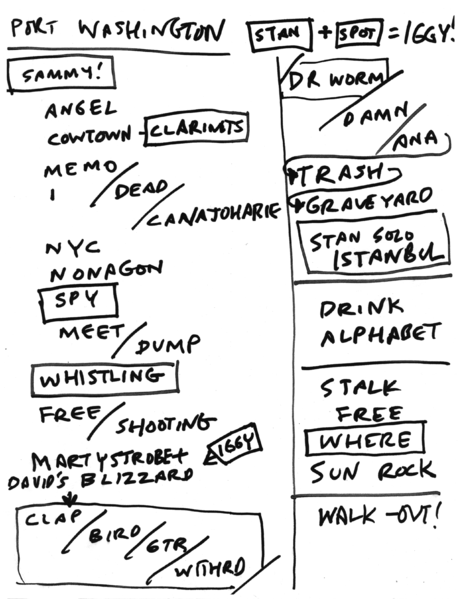 PORT WASHINGTON
STAN + SPOT = IGGY!
SAMMY!
ANGEL
COWTOWN - CLARINETS
MEMO
1 / DEAD
/ CANAJOHARIE
NYC
NONAGON
SPY
MEET / DUMP
WHISTLING
FREE / SHOOTING
MARTY STROBE +
DAVID'S BLIZZARD
IGGY
CLAP / BIRD / GTR / W/THRD
DR WORM
/ DAMN
/ ANA
TRASH
GRAVEYARD
STAN SOLO
ISTANBUL
DRINK
ALPHABET
STALK
FREE
WHERE
SUN ROCK
WALK-OUT!